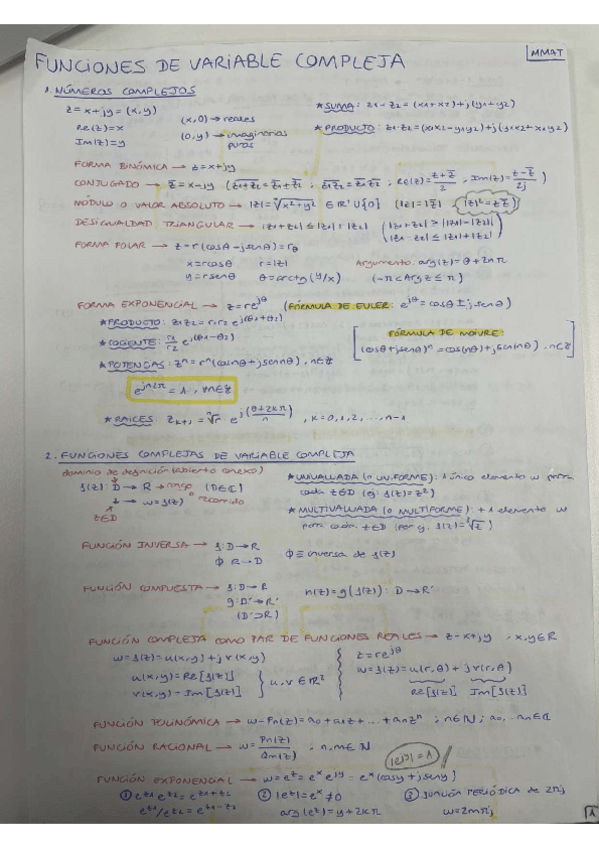 FUNCIONES DE VARIABLE COMPLEJA
MMAT
1. NÚMEROS COMPLEJOS
z = x+jy = (x, y)
Re(z)=x
Im(z)=y
(x,0) → reales
(0,y) → imaginarios puros
* SUMA: z1-z2 = (x1+x2)+j(y1+y2)
* PRODUCTO: z1·z2 = (x1x2-y1y2)+j(y1x2+x1y2)
FORMA BINÓMICA → z = x+jy
CONJUGADO → z̅ = x-jy
MÓDULO O VALOR ABSOLUTO → |z| = √x²+y² ∈ R⁺ U{0} (|z|=|z̅|) |z|²=z·z̅
DESIGUALDAD TRIANGULAR → |z1+z2| ≤ |z1|+|z2|
FORMA POLAR → z = r(cosθ-jsenθ) = rθ
x=rcosθ r=|z|
y=rsenθ θ=arctg(y/x)
Argumento: arg(z) = θ+2kπ
(-π<Arg z ≤ π)
FORMA EXPONENCIAL → z=re^jθ (FÓRMULA DE EULER: e^jθ = cosθ ± jsenθ)
* PRODUCTO: z1z2 = r1r2 e^j(θ1+θ2)
* COCIENTE: r1/r2 e^j(θ1-θ2)
* POTENCIAS: z^n = r^n(cosnθ+jsennθ), n∈Z
FÓRMULA DE MOIVRE:
(cosθ+jsenθ)^n = cos(nθ)+jsen(nθ), n∈Z
e^jn2π = 1, ∀n∈Z
* RAÍCES: z k+1 = ⁿ√r e^j(θ+2kπ)/n, k=0,1,2,...,n-1
2. FUNCIONES COMPLEJAS DE VARIABLE COMPLEJA
dominio de definición (abierto conexo)
f(z): D → R → rango (D∈ℂ)
z → w=f(z) o recorrido
z∈D
* UNIVALUADA (o UNIFORME): 1 único elemento w para
cada z∈D (ej: f(z)=z²)
* MULTIVALUADA (o MULTIFORME): +1 elemento w
para cada z∈D (por ej. f(z)=√z)
FUNCIÓN INVERSA → f: D→R
Φ R→D
Φ ≡ inversa de f(z)
FUNCIÓN COMPUESTA → f: D→R
g: D'→R'
(D'⊃R)
h(z)=g(f(z)): D→R'
FUNCIÓN COMPLEJA COMO PAR DE FUNCIONES REALES → z=x+jy ; x,y∈R
w=f(z)=u(x,y)+jv(x,y)
u(x,y)=Re[f(z)]
v(x,y)=Im[f(z)]
u,v∈R²
z=re^jθ
w=f(z)=u(r,θ)+jv(r,θ)
Re[f(z)] Im[f(z)]
FUNCIÓN POLINÓMICA → w=Pn(z)=a0+a1z+...+anz^n ; n∈N ; a0,...an∈ℂ
FUNCIÓN RACIONAL → w=Pn(z)/Qm(z) ; n,m∈N
|e^jy|=1
FUNCIÓN EXPONENCIAL → w=e^z=e^x e^jy=e^x(cosy+jseny)
① e^z1 e^z2=e^z1+z2
e^z1/e^z2=e^z1-z2
② |e^z|=e^x≠0
arg(e^z)=y+2kπ
③ FUNCIÓN PERIÓDICA de 2πj
w=2πnj
1